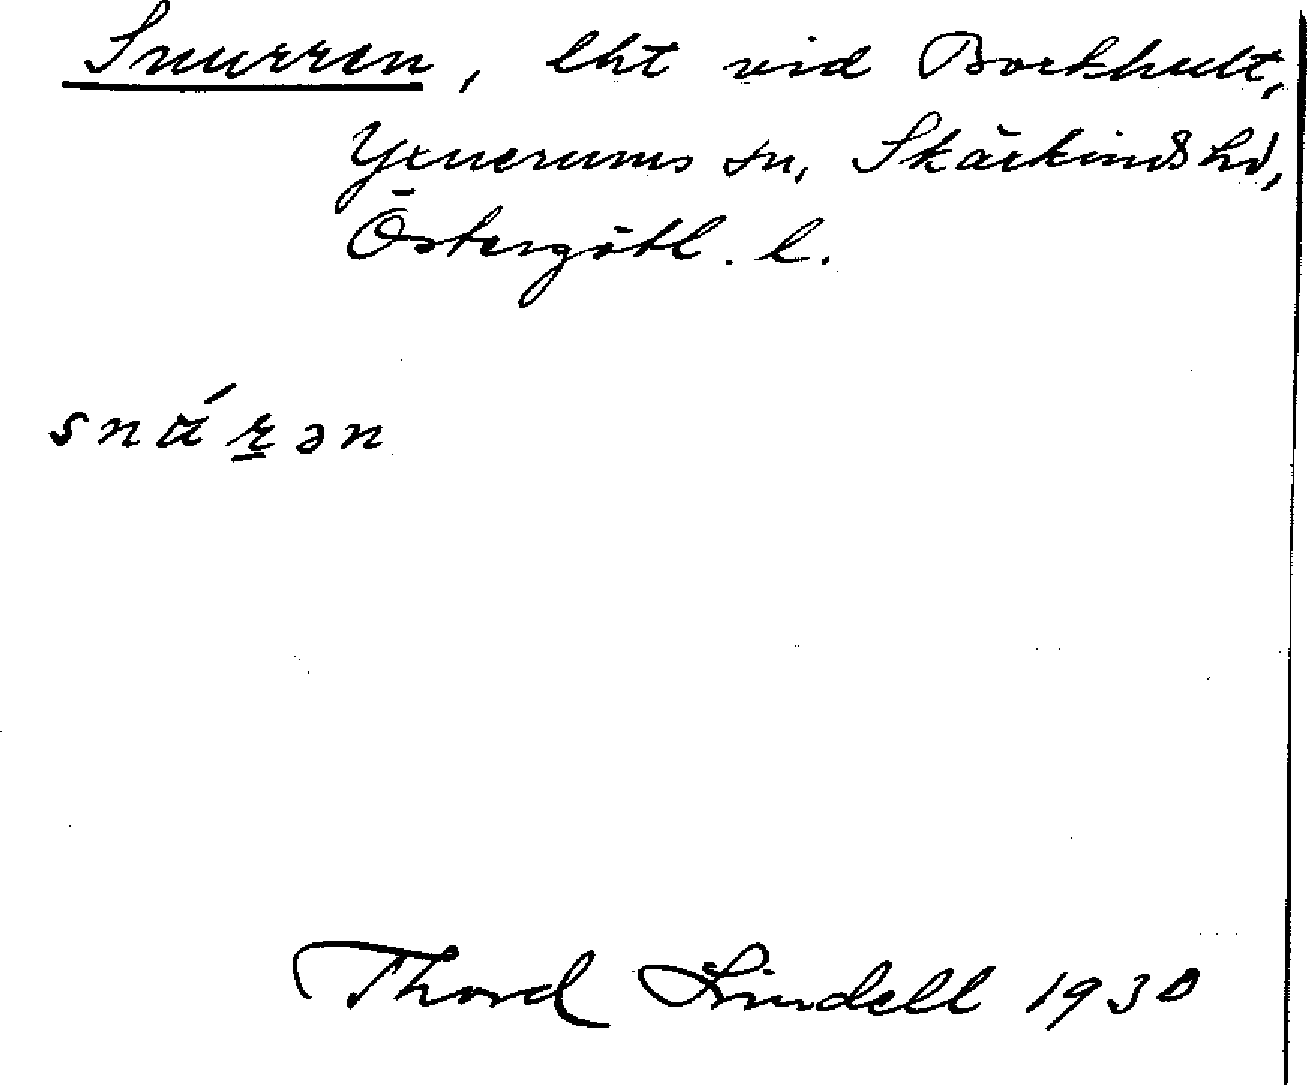 Snurren, lht vid Borkhult,
Yxnerums sn, Skärkinds hd,
Östergötl. l.
Thord Lindell 1930